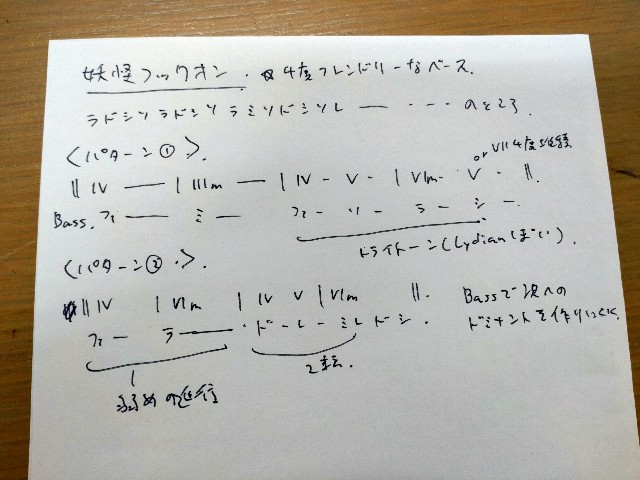 妖怪フックオン. 4度フレンドリーなベース.
ラドシソ ラドシソ ラミソドシソレ ー ・・・ のところ
<パターン①>. or VII 4度進行
|| IV ー | IIIm ー | IV - V - | VIm - V - ||.
Bass. ファ ー ミ ー ファ - ソ - ラ - シ -.
トライトーン(Lydianぽい).
<パターン②>.
|| IV | VIm | IV V | VIm ||. Bassで次への
ファ ー ラ ー ・ド - レ - ミレドシ. ドミナントを作りにくく
弱めの進行 2転.